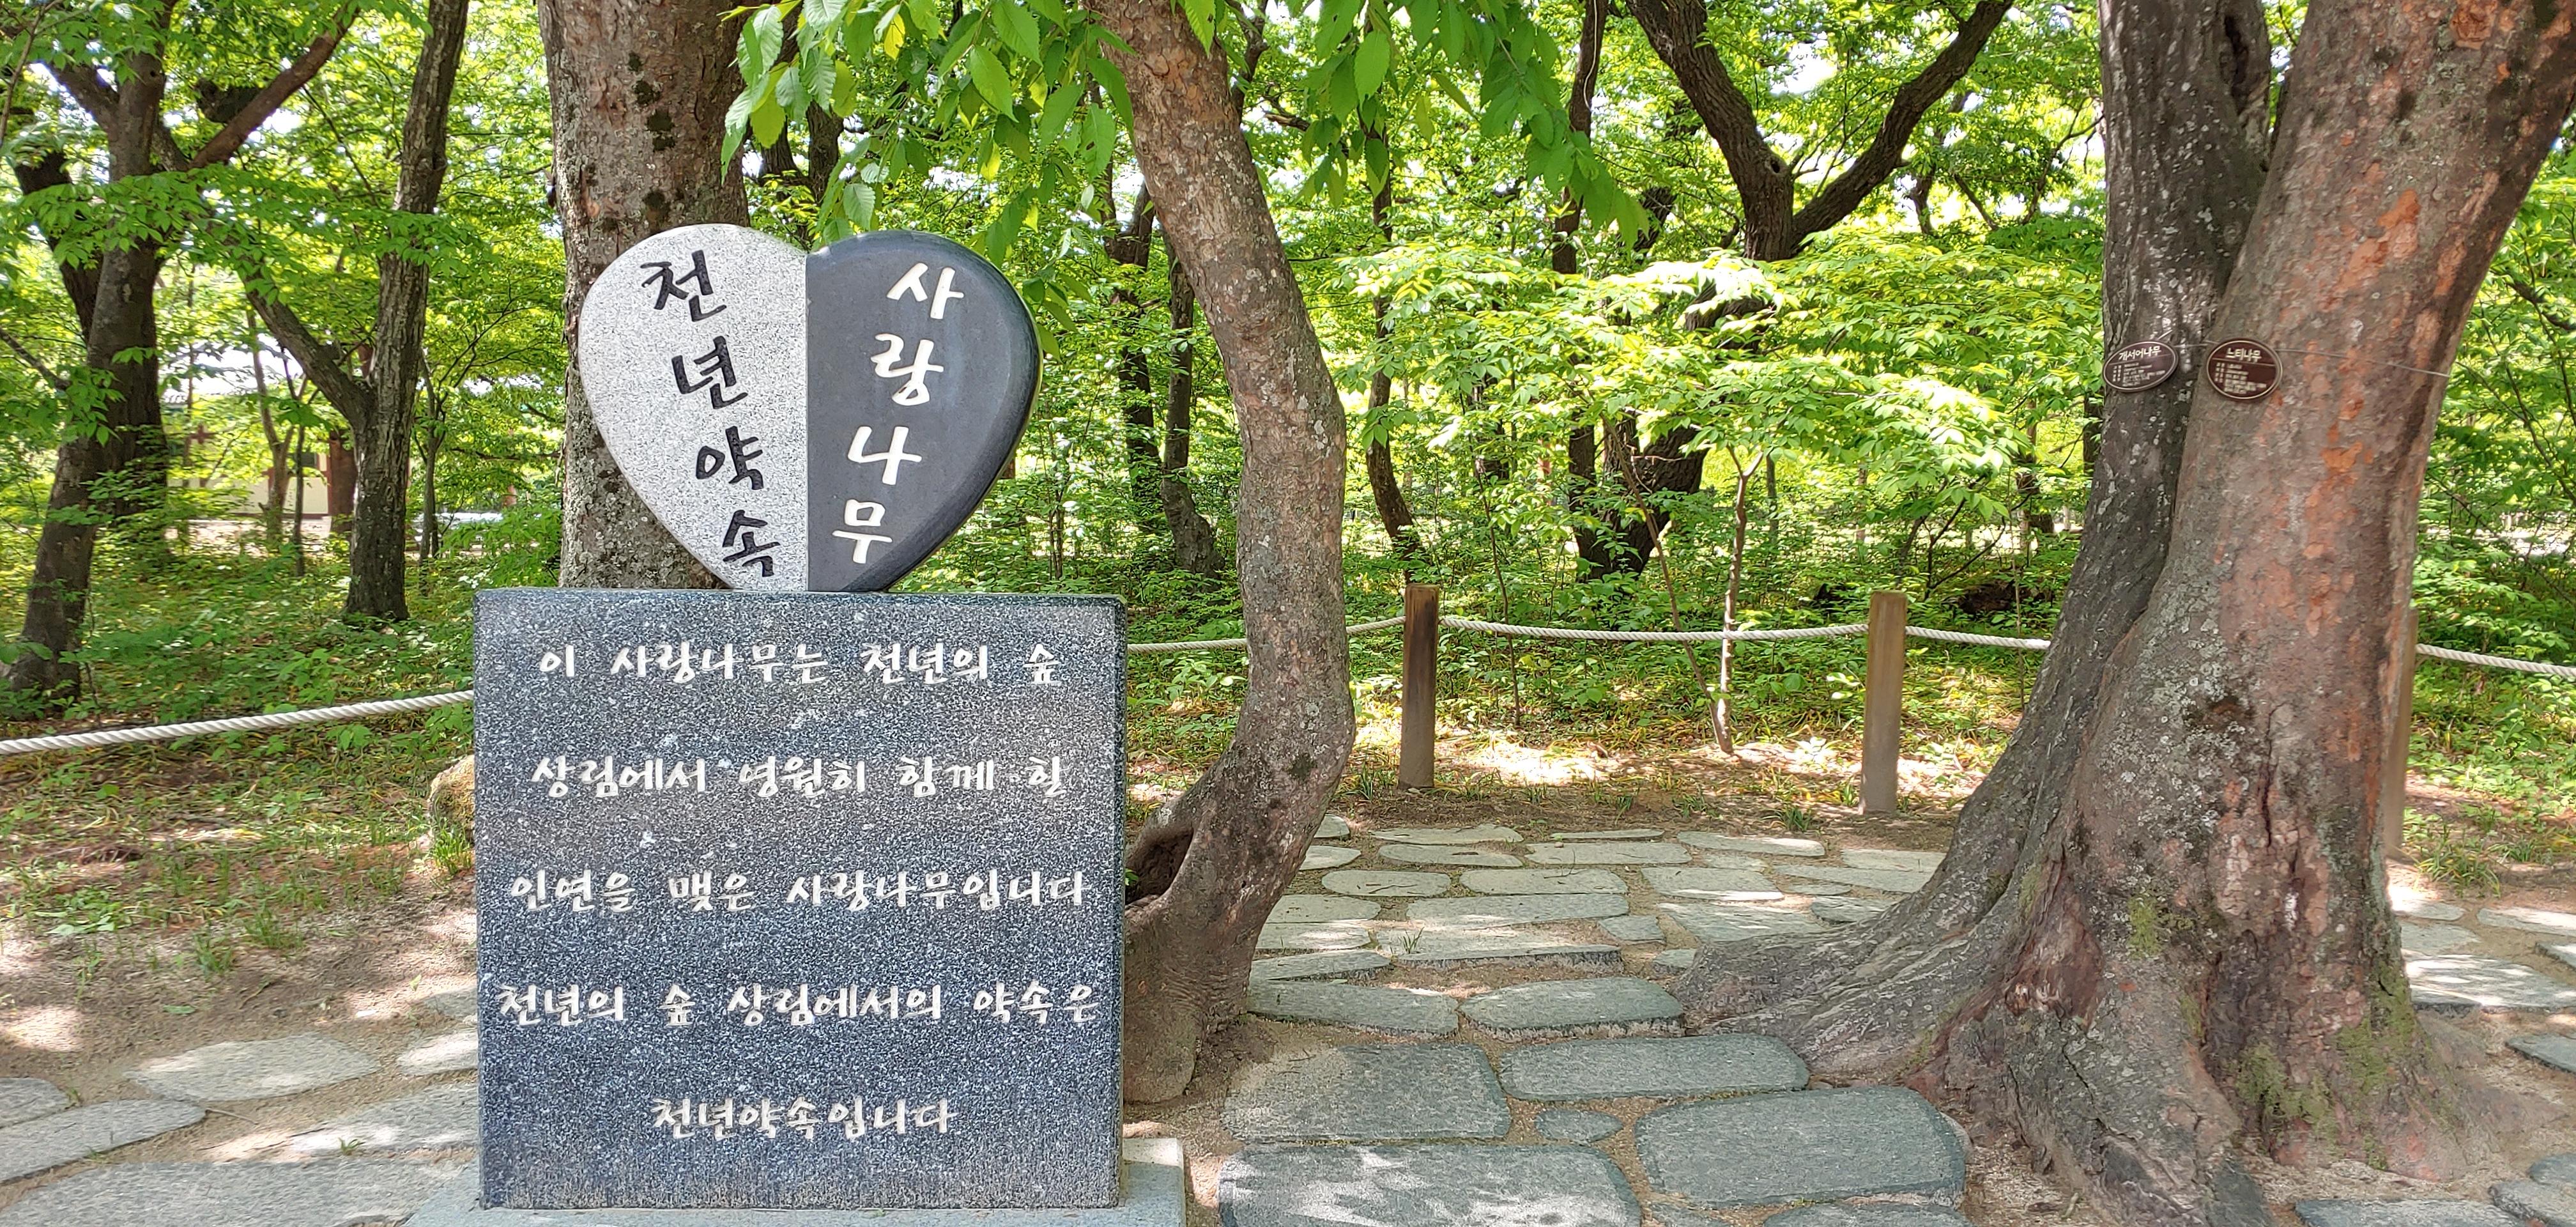 천년약속
사랑나무
이 사랑나무는 천년의 숲
상림에서 영원히 함께 할
인연을 맺은 사랑나무입니다
천년의 숲 상림에서의 약속은
천년약속입니다
개서어나무
느티나무